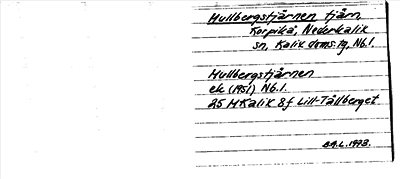 Hullbergstjärnen tjärn
Korpikå, Nederkalix
sn, Kalix doms.tg, Nb.l.
Hullbergstjärnen
ek (1951) Nb.l.
25 M Kalix 8f Lill-Tällberget
BA.L. 1993.